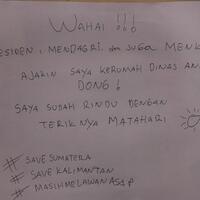 WAHAI !!!
ESIDEN, MENDAGRI. dan JUGA MENK
AJAKIN SAYA KERUMAH DINAS AN
DONG !
SAYA SUDAH RINDU DENGAN
TERIKNYA MATAHARI
# SAVE SUMATERA
# SAVE KALIMANTAN
# MASIH MELAWAN ASAP